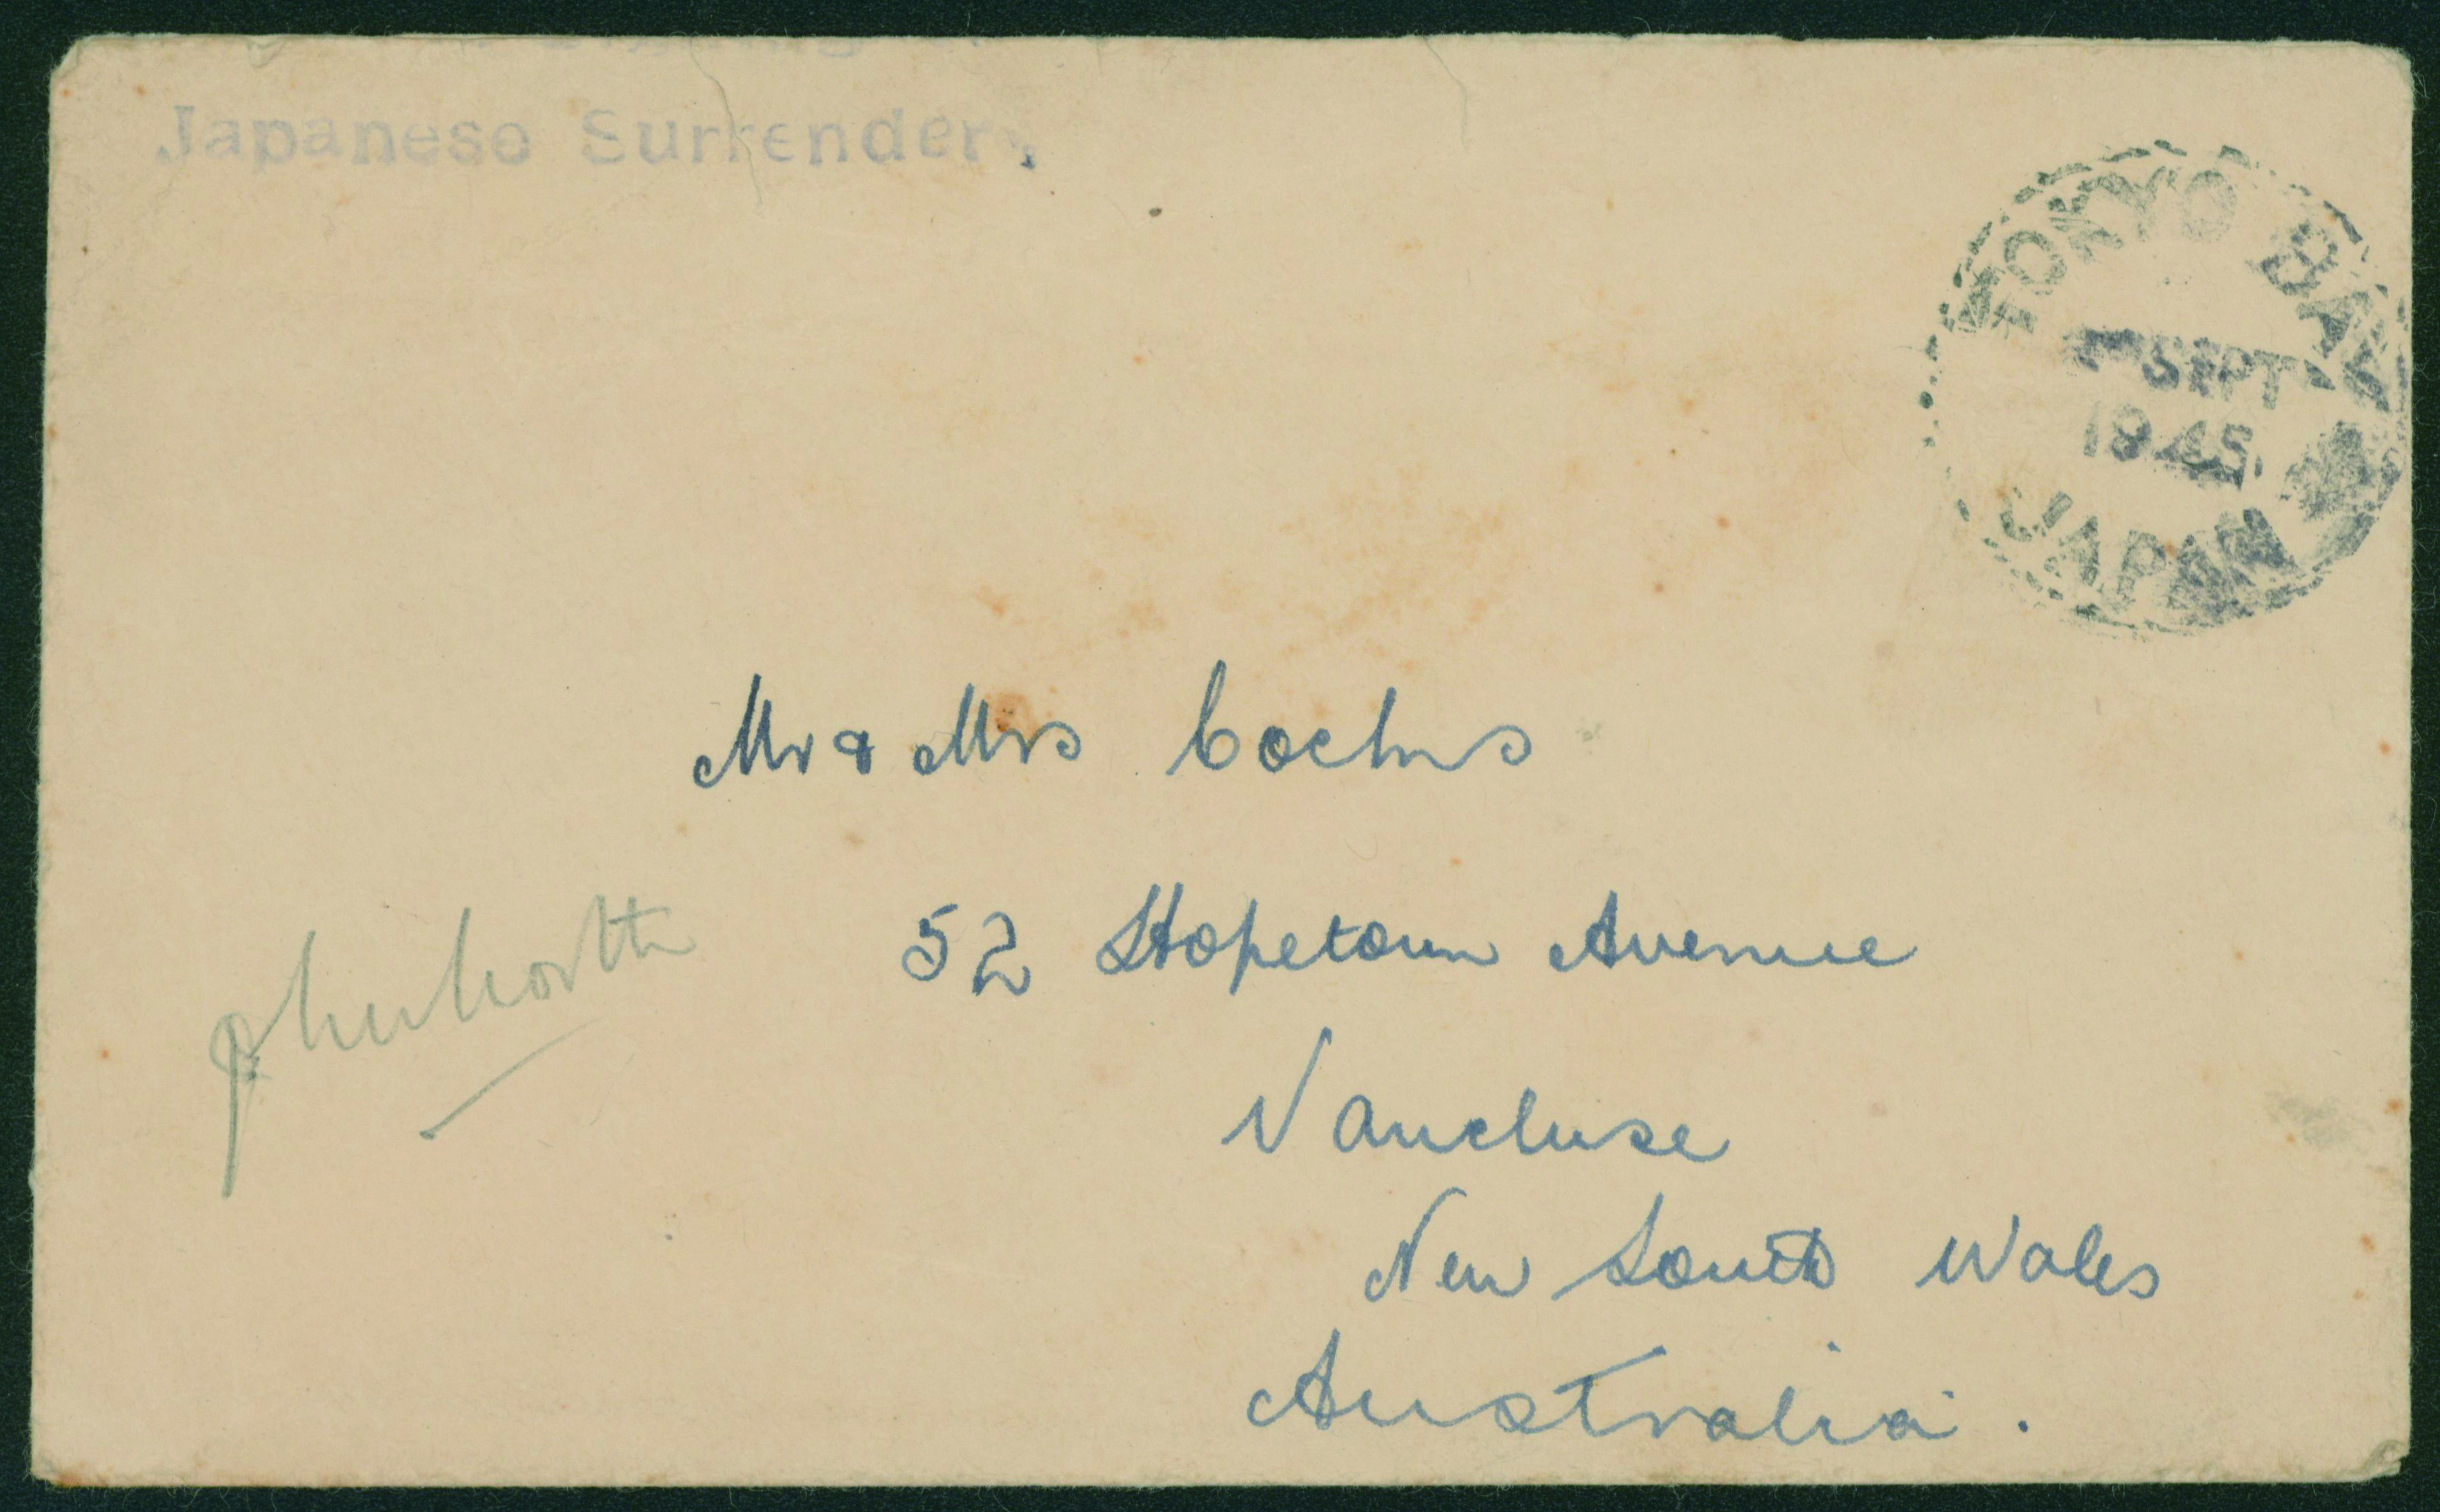 Japanese Surrender.
TOKYO BAY
SEPT
1945
JAPAN
Mr & Mrs
52 Hopetoun Avenue
Vaucluse
New South Wales
Australia.